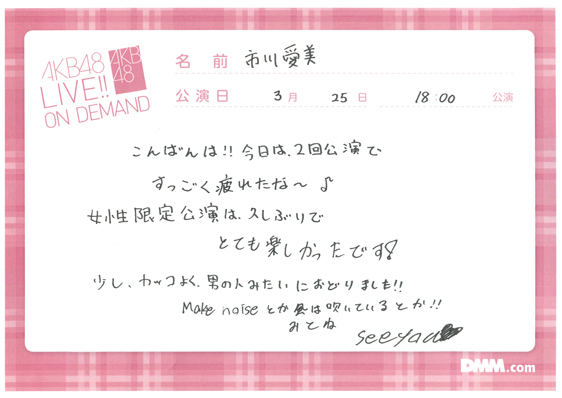 AKB48
LIVE!!
ON DEMAND
AKB
48
名前 市川愛美
公演日 3月 25日 18:00 公演
こんばんは!! 今日は、2回公演で
すっごく疲れたな〜♪
女性限定公演は、久しぶりで
とても楽しかったです!
少し、カッコよく、男の人みたいにおどりました!!
Make noise とか風は吹いているとか!!
みてね
see you
DMM.com